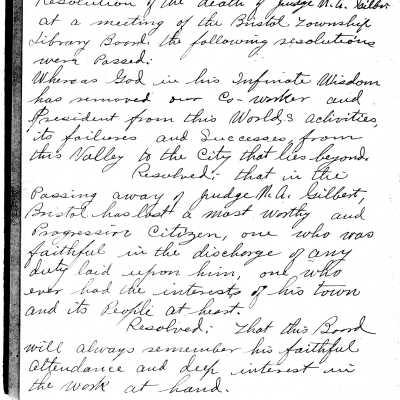 Resolution of the death of Judge M.A. Gilbert
at a meeting of the Bristol Township
Library Board, the following resolutions
were Passed:
Whereas God in his Infinate Wisdom
has removed our Co-worker and
President from this World, & activities,
its failures and Successes, from
this Valley to the City that lies beyond.
Resolved: that in the
Passing away of Judge M.A. Gilbert,
Bristol has lost a most worthy and
Progressive Citizen, one who was
faithful in the discharge of any
duty laid upon him, one who
ever had the interests of his town
and its People at heart.
Resolved: That this Board
will always remember his faithful
attendance and deep interest in
the work at hand.